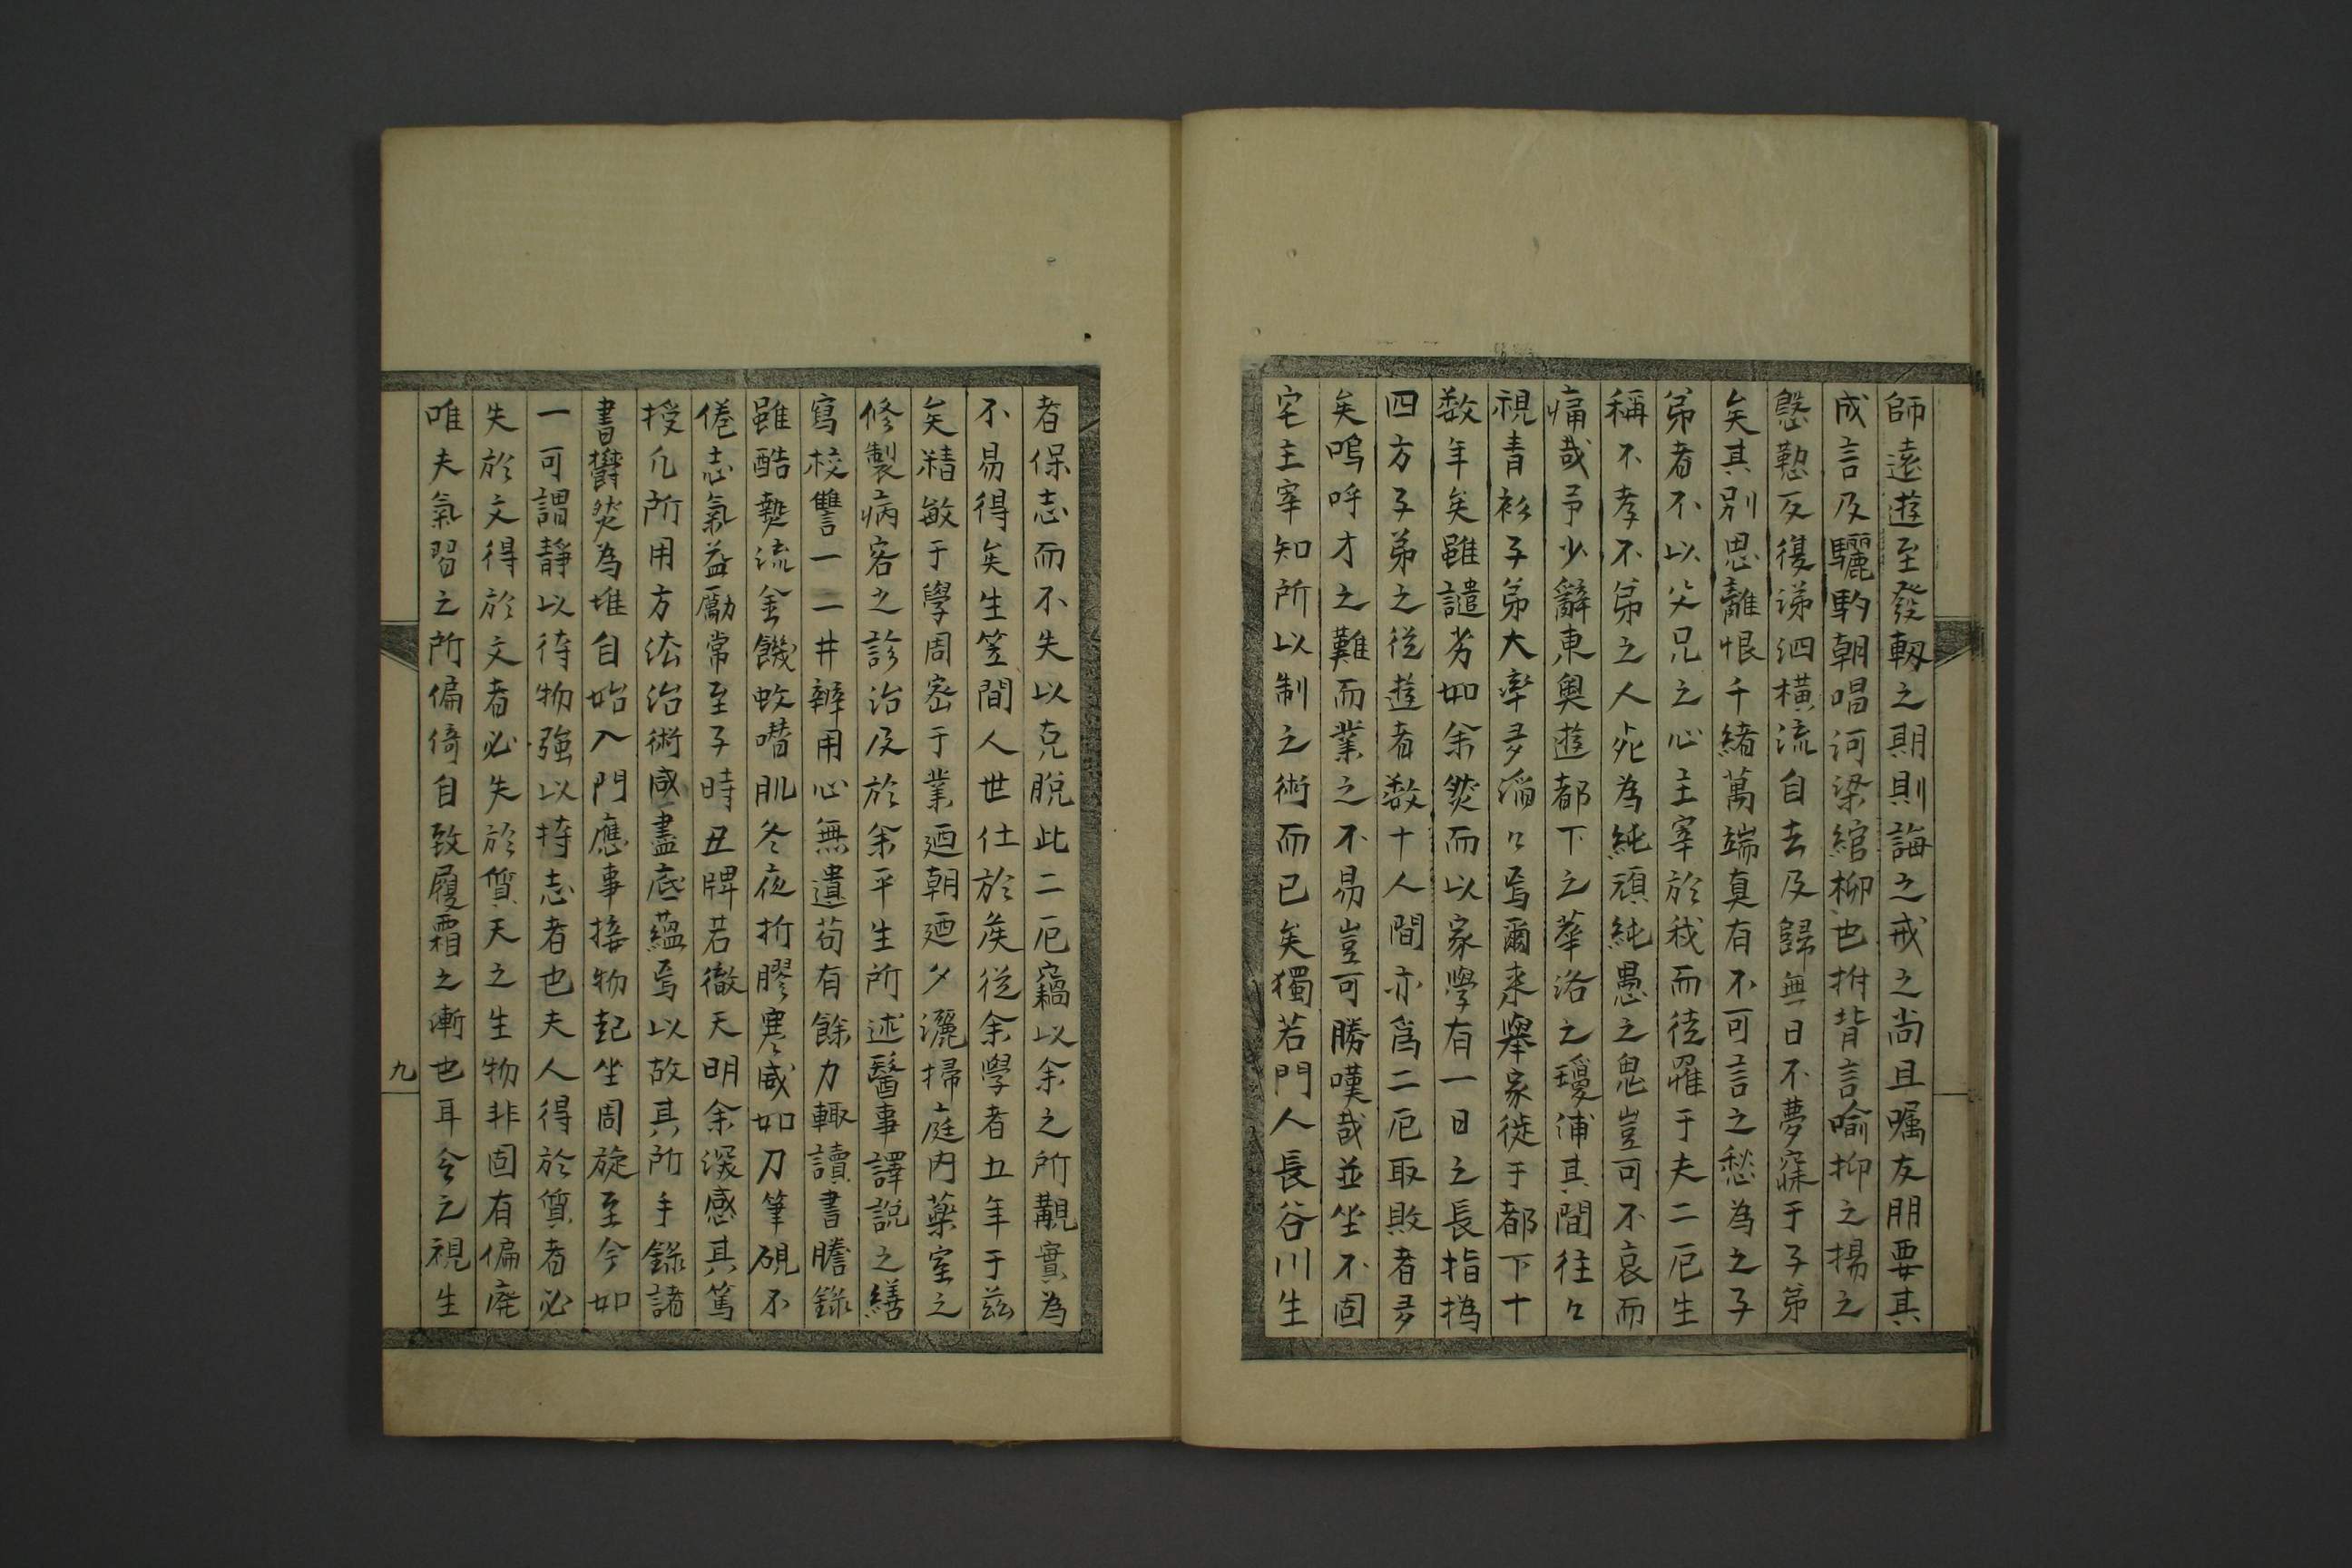 師遠遊至發軔之期則誨之戒之尚且囑友朋要其
成言及驪駒朝唱河梁綰柳也拊背言喻抑之揚之
慇懃反復涕泗橫流自去及歸無日不夢寐于子弟
矣其別思離恨千緒萬端真有不可言之愁為之子
弟者不以父兄之心主宰於我而徒罹于夫二厄生
稱不孝不弟之人死為純頑純愚之鬼豈可不哀而
痛哉予少辭東奧遊都下之華洛之瓊浦其間往々
視青衫子弟大率多滔々焉爾来舉家徙于都下十
数年矣雖譴劣如余焚而以家學有一日之長指撝
四方子弟之從遊者数十人間亦爲二厄取敗者多
矣嗚呼才之難而業之不易豈可勝嘆哉並坐不固
宅主宰知所以制之術而已矣獨若門人長谷川生
者保志而不失以克脫此二厄竊以余之所覯實為
不易得矣生笠間人世仕於矦從余學者五年于茲
矣精敏于學周密于業廼朝廼夕灑掃庭内藥室之
修製病客之診治及於余平生所述醫事譯説之繕
寫校讐一一井辨用心無遺苟有餘力輒讀書謄錄
雖酷熱流金饑蚊噆肌冬夜折膠寒威如刀筆硯不
倦志氣益勵常至子時丑牌若徹天明余深感其篤
授凢所用方法治術咸盡底蘊焉以故其所手錄諸
書欝焚為堆自始入門應事接物起坐周旋至今如
一可謂靜以待物強以持志者也夫人得於質者必
失於文得於文者必失於質天之生物非固有偏廃
唯夫氣習之所偏倚自致履霜之漸也耳今之視生
九